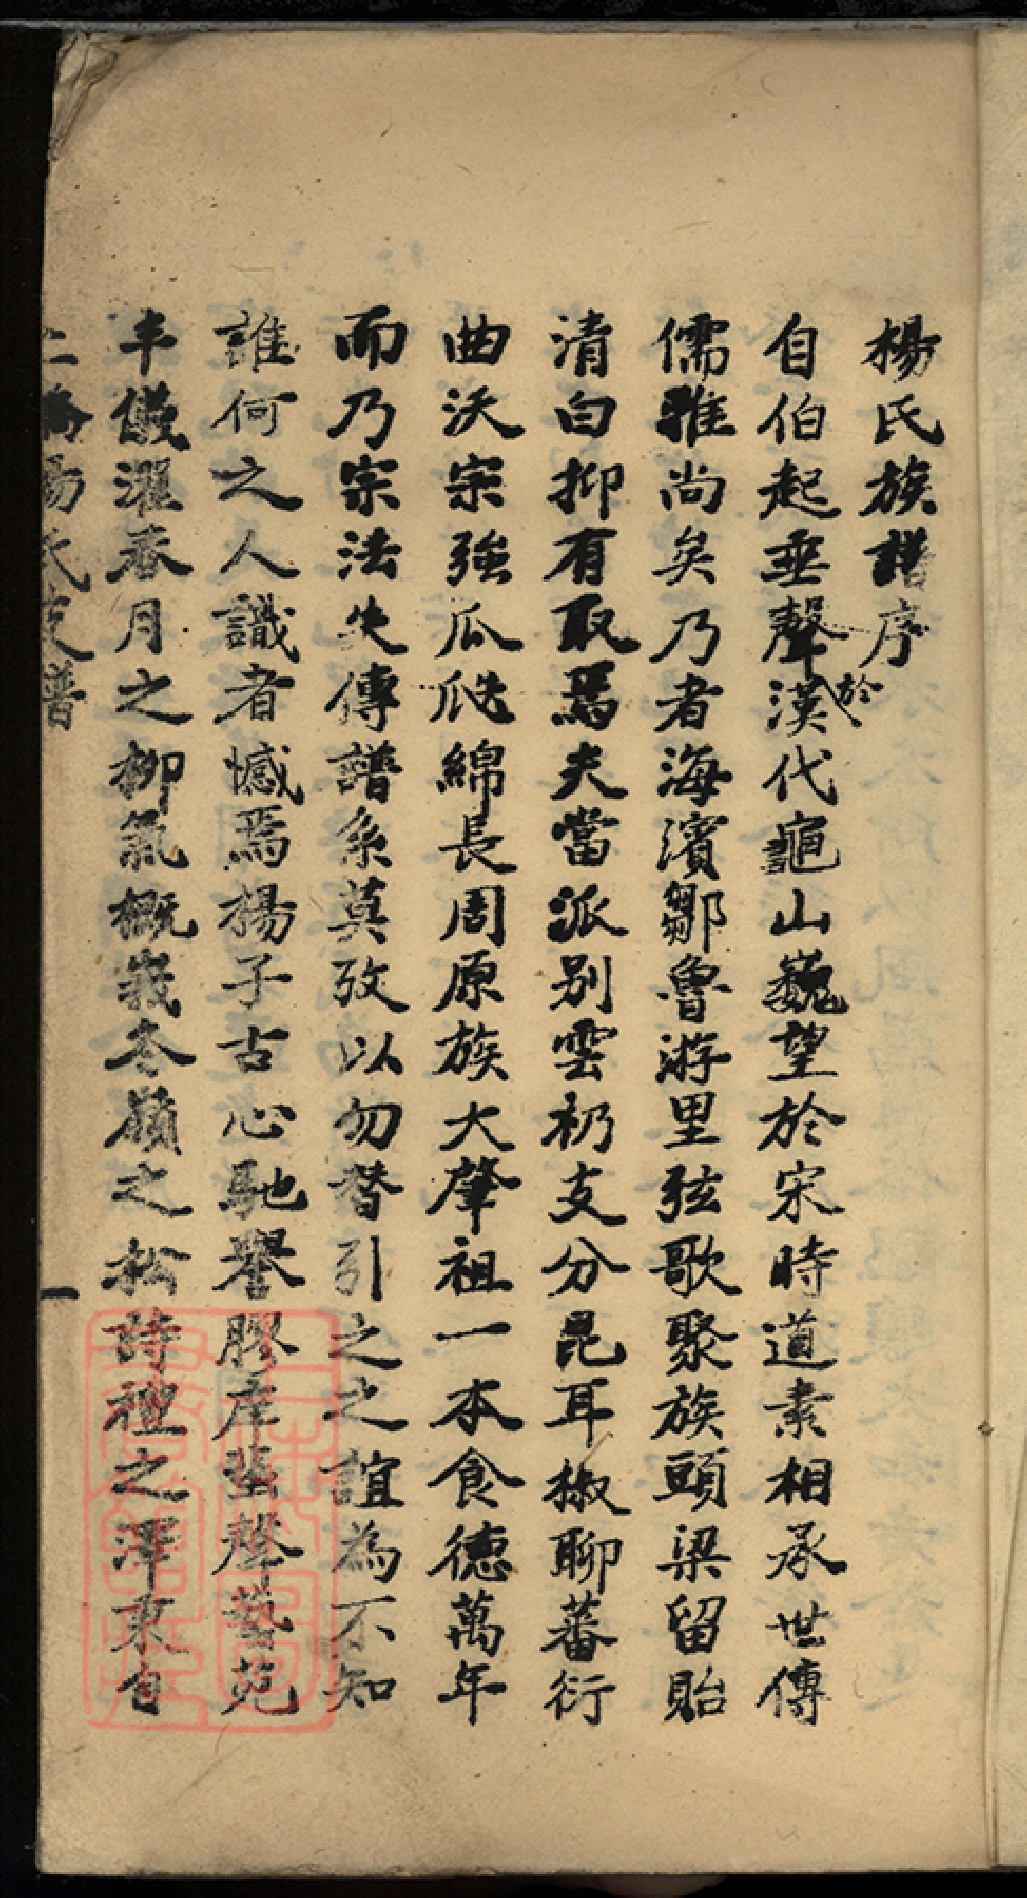 楊氏族譜序
自伯起垂聲於漢代龜山巍望於宋時道素相承世傳
儒雅尚矣乃者海濱鄒魯游里弦歌聚族頭梁留貽
清白抑有取焉夫當派別雲礽支分昆耳椒聊蕃衍
曲沃宗強瓜瓞綿長周原族大肇祖一本食德萬年
而乃宗法失傳譜系莫攷以勿替引之之誼為不知
誰何之人識者憾焉楊子古心馳譽膠庠蜚聲藝苑
丰儀濯春月之柳氣概峩冬嶺之松詩禮之澤來自
上楊氏支譜 一